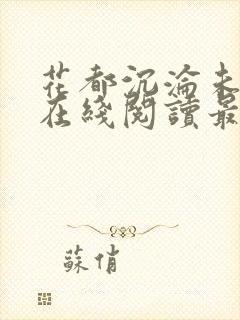 花都沉淪未
在綫閱讀最
蘇俏